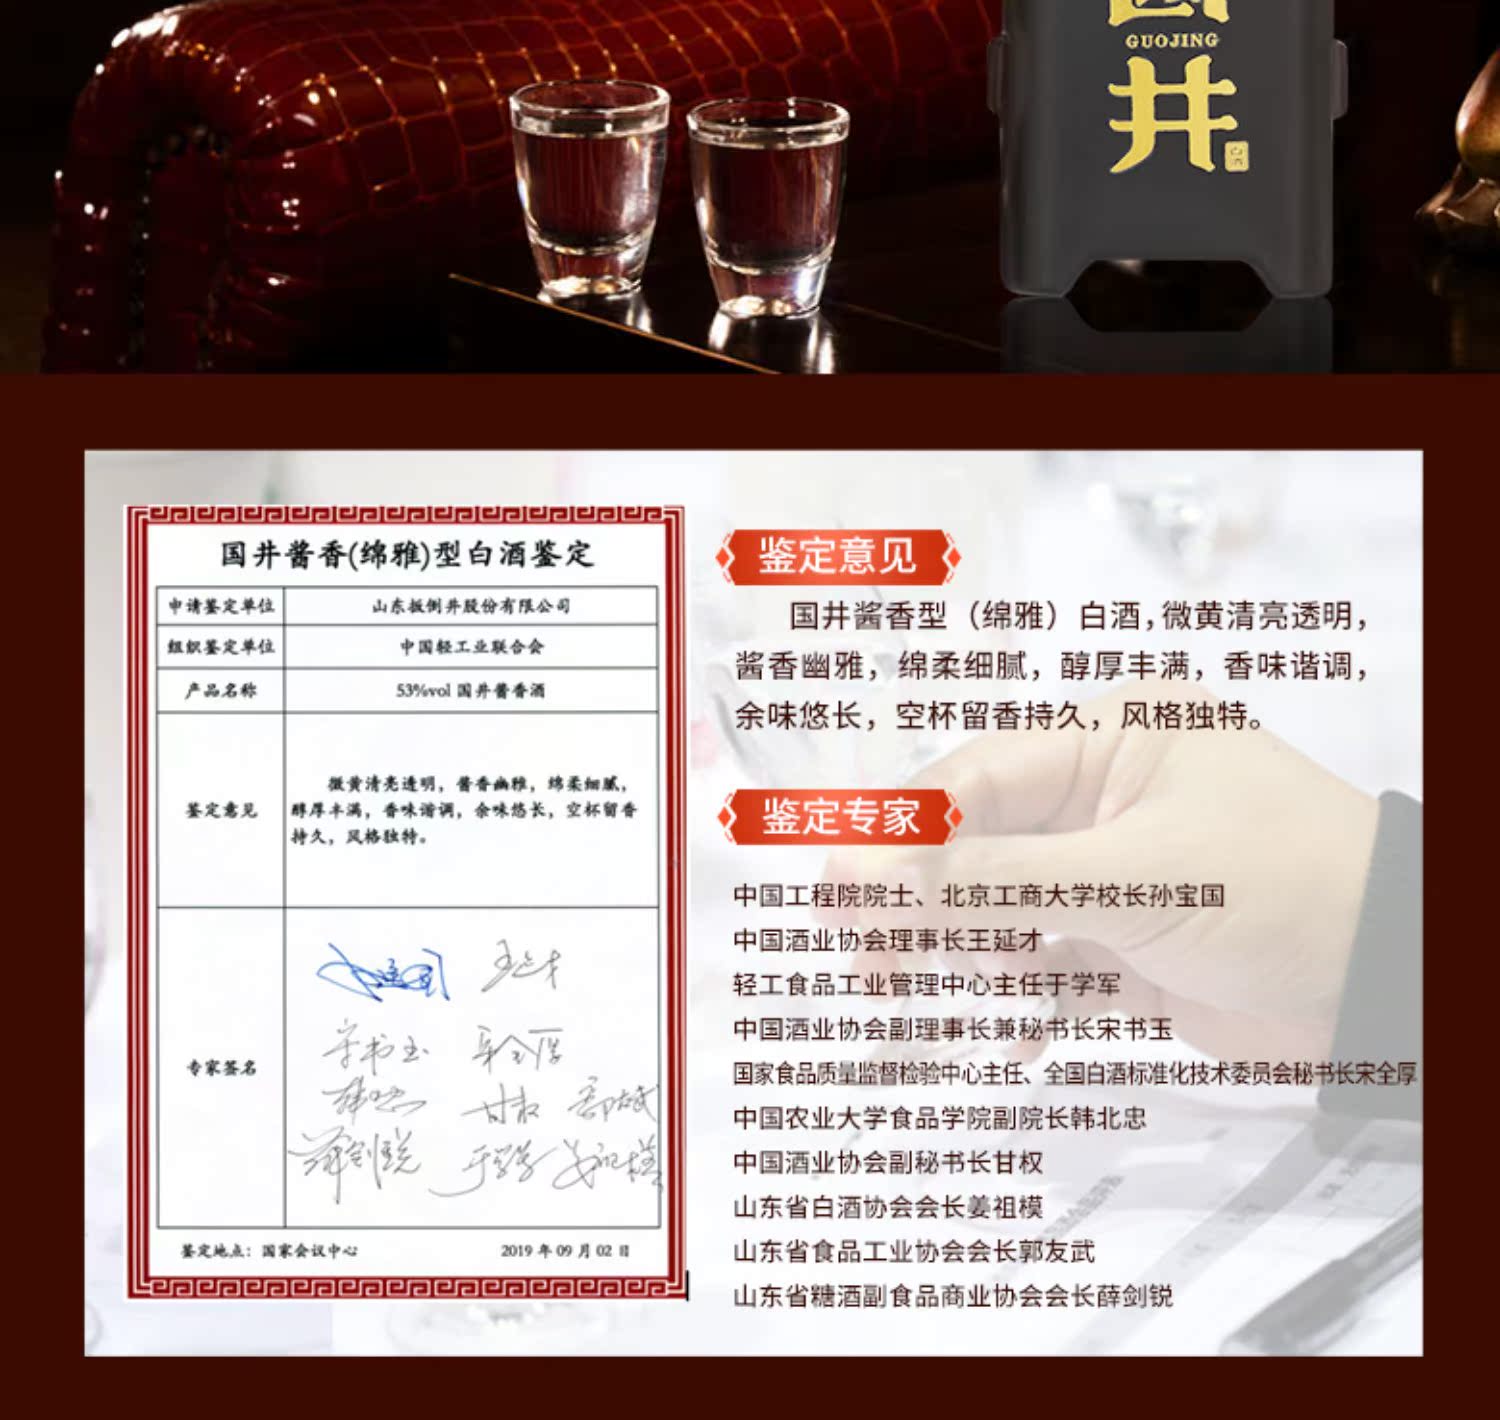 GUOJING
井
白酒
国井酱香(绵雅)型白酒鉴定
申请鉴定单位 山东扳倒井股份有限公司
组织鉴定单位 中国轻工业联合会
产品名称 53%vol 国井酱香酒
鉴定意见
微黄清亮透明，酱香幽雅，绵柔细腻，
醇厚丰满，香味谐调，余味悠长，空杯留香
持久，风格独特。
专家签名
鉴定地点：国家会议中心 2019 年 09 月 02 日
鉴定意见
国井酱香型（绵雅）白酒，微黄清亮透明，
酱香幽雅，绵柔细腻，醇厚丰满，香味谐调，
余味悠长，空杯留香持久，风格独特。
鉴定专家
中国工程院院士、北京工商大学校长孙宝国
中国酒业协会理事长王延才
轻工食品工业管理中心主任于学军
中国酒业协会副理事长兼秘书长宋书玉
国家食品质量监督检验中心主任、全国白酒标准化技术委员会秘书长宋全厚
中国农业大学食品学院副院长韩北忠
中国酒业协会副秘书长甘权
山东省白酒协会会长姜祖模
山东省食品工业协会会长郭友武
山东省糖酒副食品商业协会会长薛剑锐